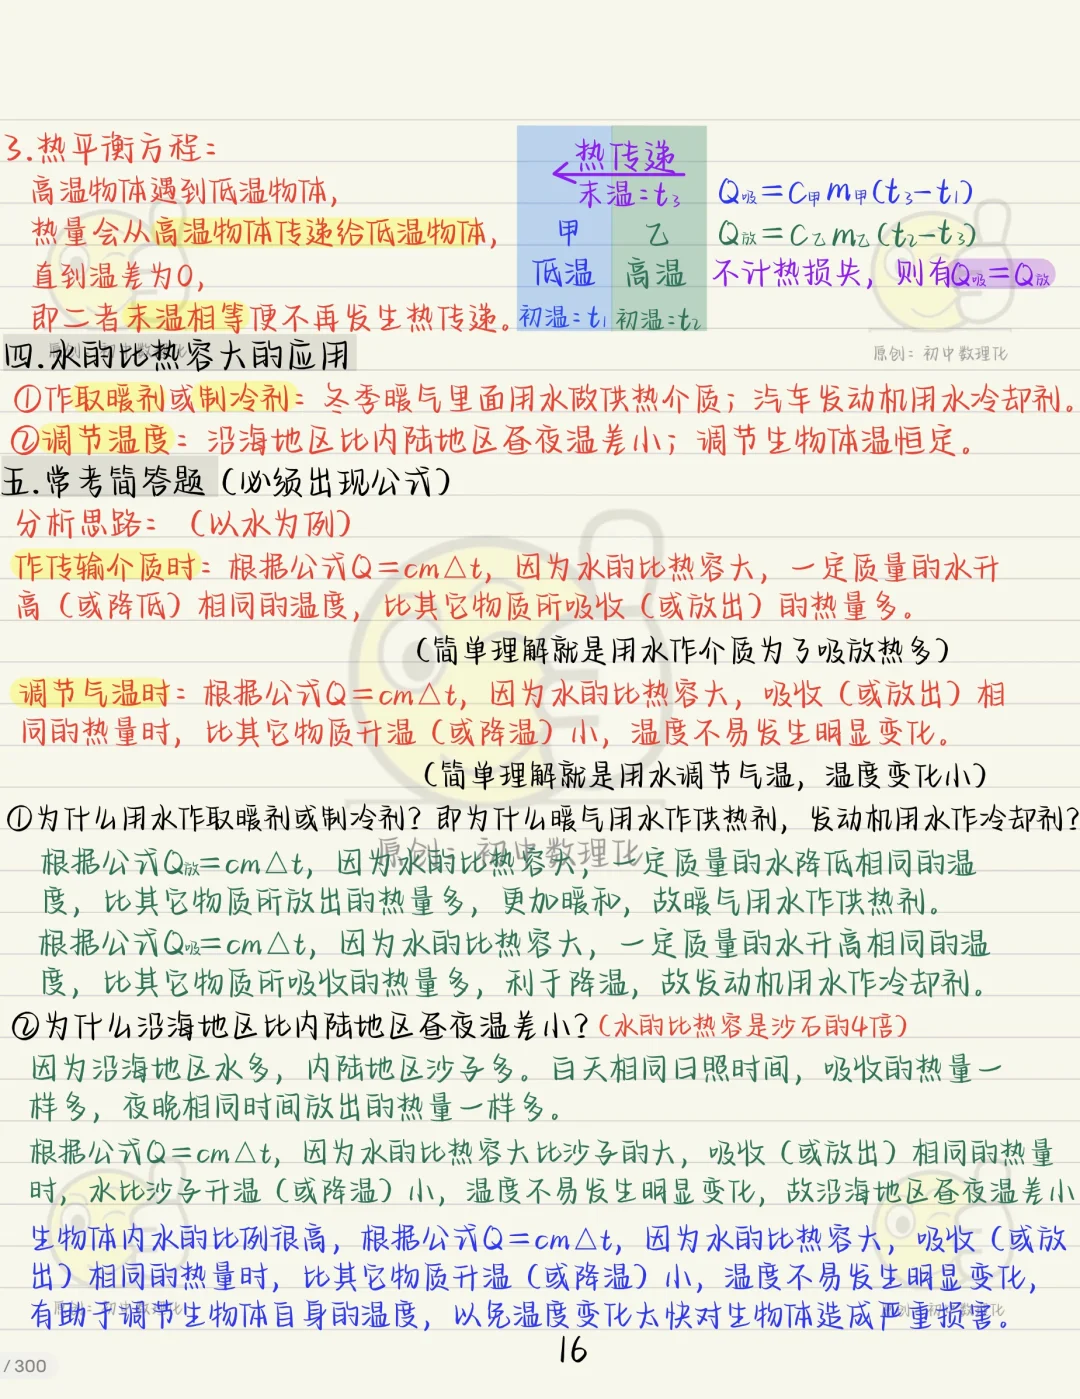 3.热平衡方程:
高温物体遇到低温物体,
热量会从高温物体传递给低温物体,
直到温差为0,
即二者末温相等便不再发生热传递。
热传递
末温:t₃
甲 乙
低温 高温
初温:t₁ 初温:t₂
Q吸=C甲m甲(t₃-t₁)
Q放=C乙m乙(t₂-t₃)
不计热损失,则有Q吸=Q放
原创:初中数理化
原创:初中数理化
四.水的比热容大的应用
①作取暖剂或制冷剂:冬季暖气里面用水做供热介质;汽车发动机用水冷却剂。
②调节温度:沿海地区比内陆地区昼夜温差小;调节生物体温恒定。
五.常考简答题(必须出现公式)
分析思路:(以水为例)
作传输介质时:根据公式Q=cm△t,因为水的比热容大,一定质量的水升
高(或降低)相同的温度,比其它物质所吸收(或放出)的热量多。
(简单理解就是用水作介质为了吸放热多)
调节气温时:根据公式Q=cm△t,因为水的比热容大,吸收(或放出)相
同的热量时,比其它物质升温(或降温)小,温度不易发生明显变化。
(简单理解就是用水调节气温,温度变化小)
①为什么用水作取暖剂或制冷剂?即为什么暖气用水作供热剂,发动机用水作冷却剂?
原创:初中数理化
根据公式Q放=cm△t,因为水的比热容大,一定质量的水降低相同的温
度,比其它物质所放出的热量多,更加暖和,故暖气用水作供热剂。
根据公式Q吸=cm△t,因为水的比热容大,一定质量的水升高相同的温
度,比其它物质所吸收的热量多,利于降温,故发动机用水作冷却剂。
②为什么沿海地区比内陆地区昼夜温差小?(水的比热容是沙石的4倍)
因为沿海地区水多,内陆地区沙子多。白天相同日照时间,吸收的热量一
样多,夜晚相同时间放出的热量一样多。
根据公式Q=cm△t,因为水的比热容大比沙子的大,吸收(或放出)相同的热量
时,水比沙子升温(或降温)小,温度不易发生明显变化,故沿海地区昼夜温差小
生物体内水的比例很高,根据公式Q=cm△t,因为水的比热容大,吸收(或放
出)相同的热量时,比其它物质升温(或降温)小,温度不易发生明显变化,
有助于调节生物体自身的温度,以免温度变化太快对生物体造成严重损害。
原创:初中数理化
原创:初中数理化
16
/ 300